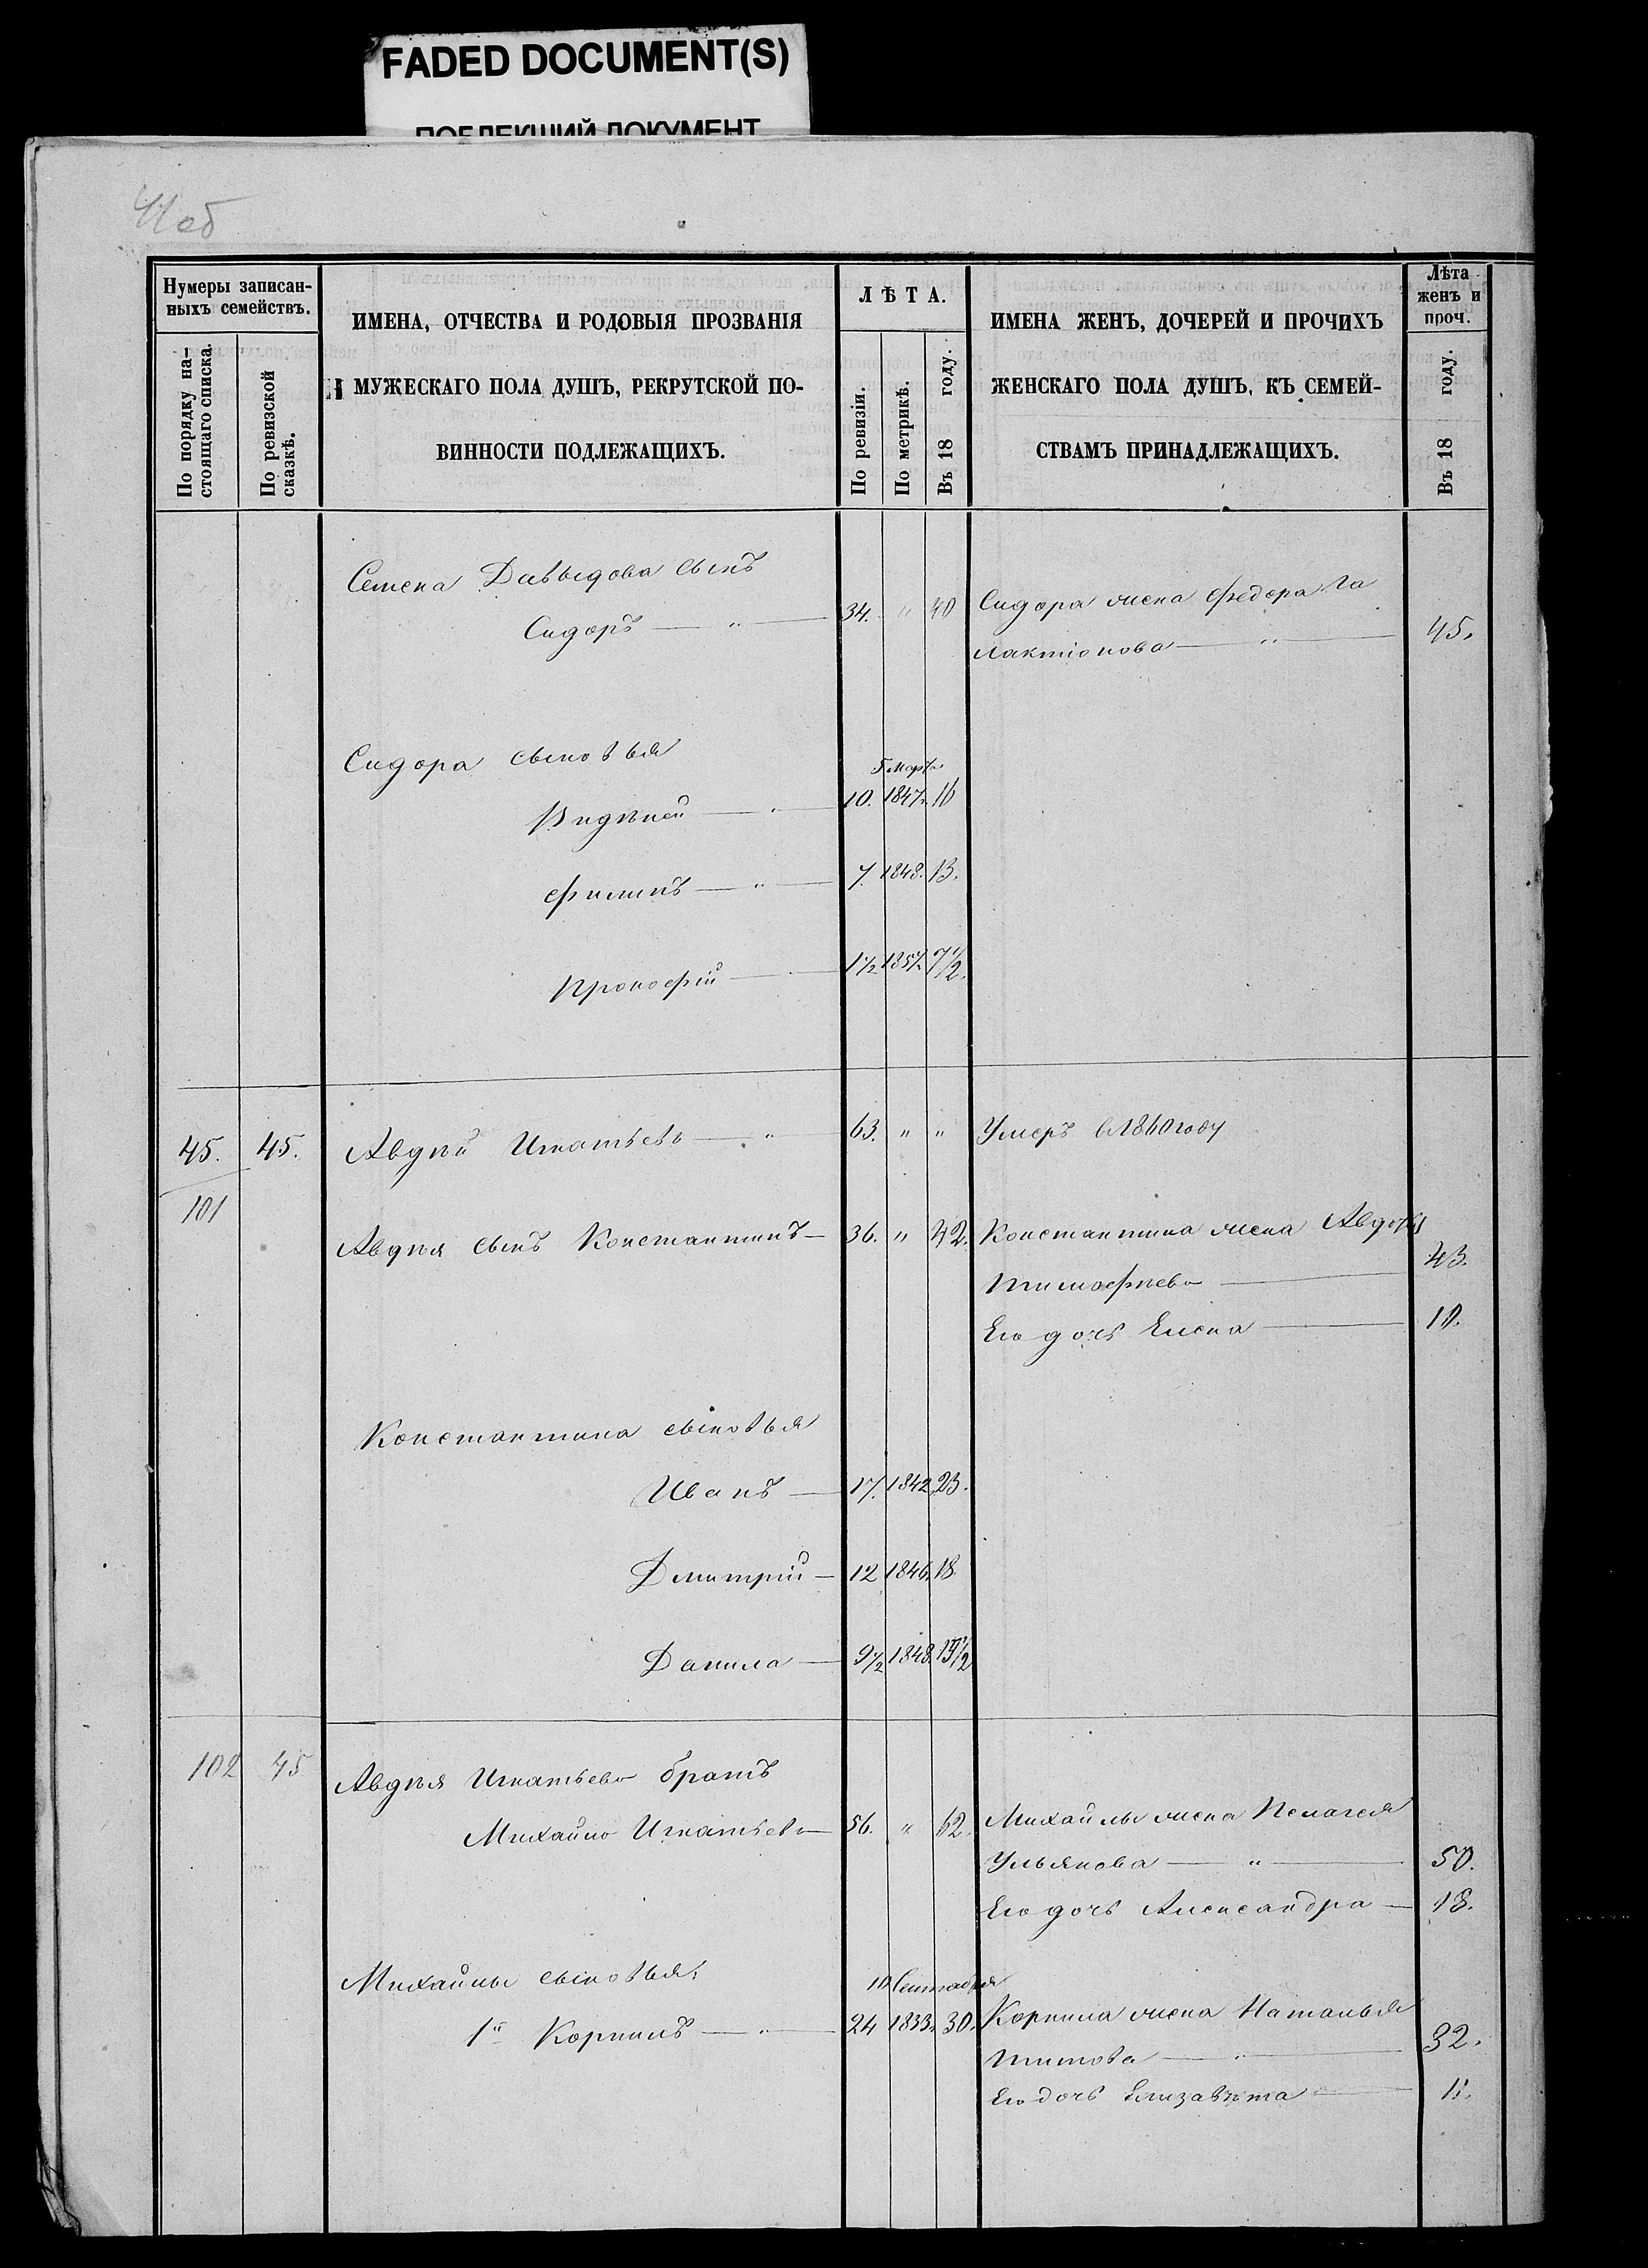 FADED DOCUMENT(S)
ПОБЛЕКШИЙ ДОКУМЕНТ
41 об
Нумеры записан-
ныхъ семействъ.
По порядку на-
стоящаго списка.
По ревизской
сказкѣ.
ИМЕНА, ОТЧЕСТВА И РОДОВЫЯ ПРОЗВАНІЯ
МУЖЕСКАГО ПОЛА ДУШЪ, РЕКРУТСКОЙ ПО-
ВИННОСТИ ПОДЛЕЖАЩИХЪ.
ЛѢТА.
По ревизіи.
По метрикѣ.
Въ 18 году.
ИМЕНА ЖЕНЪ, ДОЧЕРЕЙ И ПРОЧИХЪ
ЖЕНСКАГО ПОЛА ДУШЪ, КЪ СЕМЕЙ-
СТВАМЪ ПРИНАДЛЕЖАЩИХЪ.
Лѣта
женъ и
проч.
Въ 18 году.
Семена Давыдова сынъ
Сидоръ — " — 34. " 40 Сидора жена Федора
Лактіонова — " — 45.
Сидора сыновья
5 Марта
10. 1847. 16
Филипъ — " — 7. 1848. 13.
Прокофій — 1½ 1857 7½.
45. 45. Авдѣй Игнатьевъ — " — 63. " " Умеръ в 1860 году
101
Авдѣя сынъ Константинъ — 36. " 42. Константина жена Авдотья
Тимофѣева — 43.
Его дочь Елена — 10.
Константина сыновья
Иванъ — 17. 1842 23.
Дмитрій — 12 1846. 18.
Данила — 9½ 1848.
102 45 Авдѣя Игнатьева братъ
Михайло Игнатьевъ — 56. " 62. Михайлы жена Пелагея
Ульянова — " — 50.
Его дочь Александра — 18.
Михайлы сыновья:
10 Сентября
1й Корнилъ — " — 24 1833. 30. Корнила жена Наталья
Титова — " — 32.
Его дочь Елизавѣта — 11.